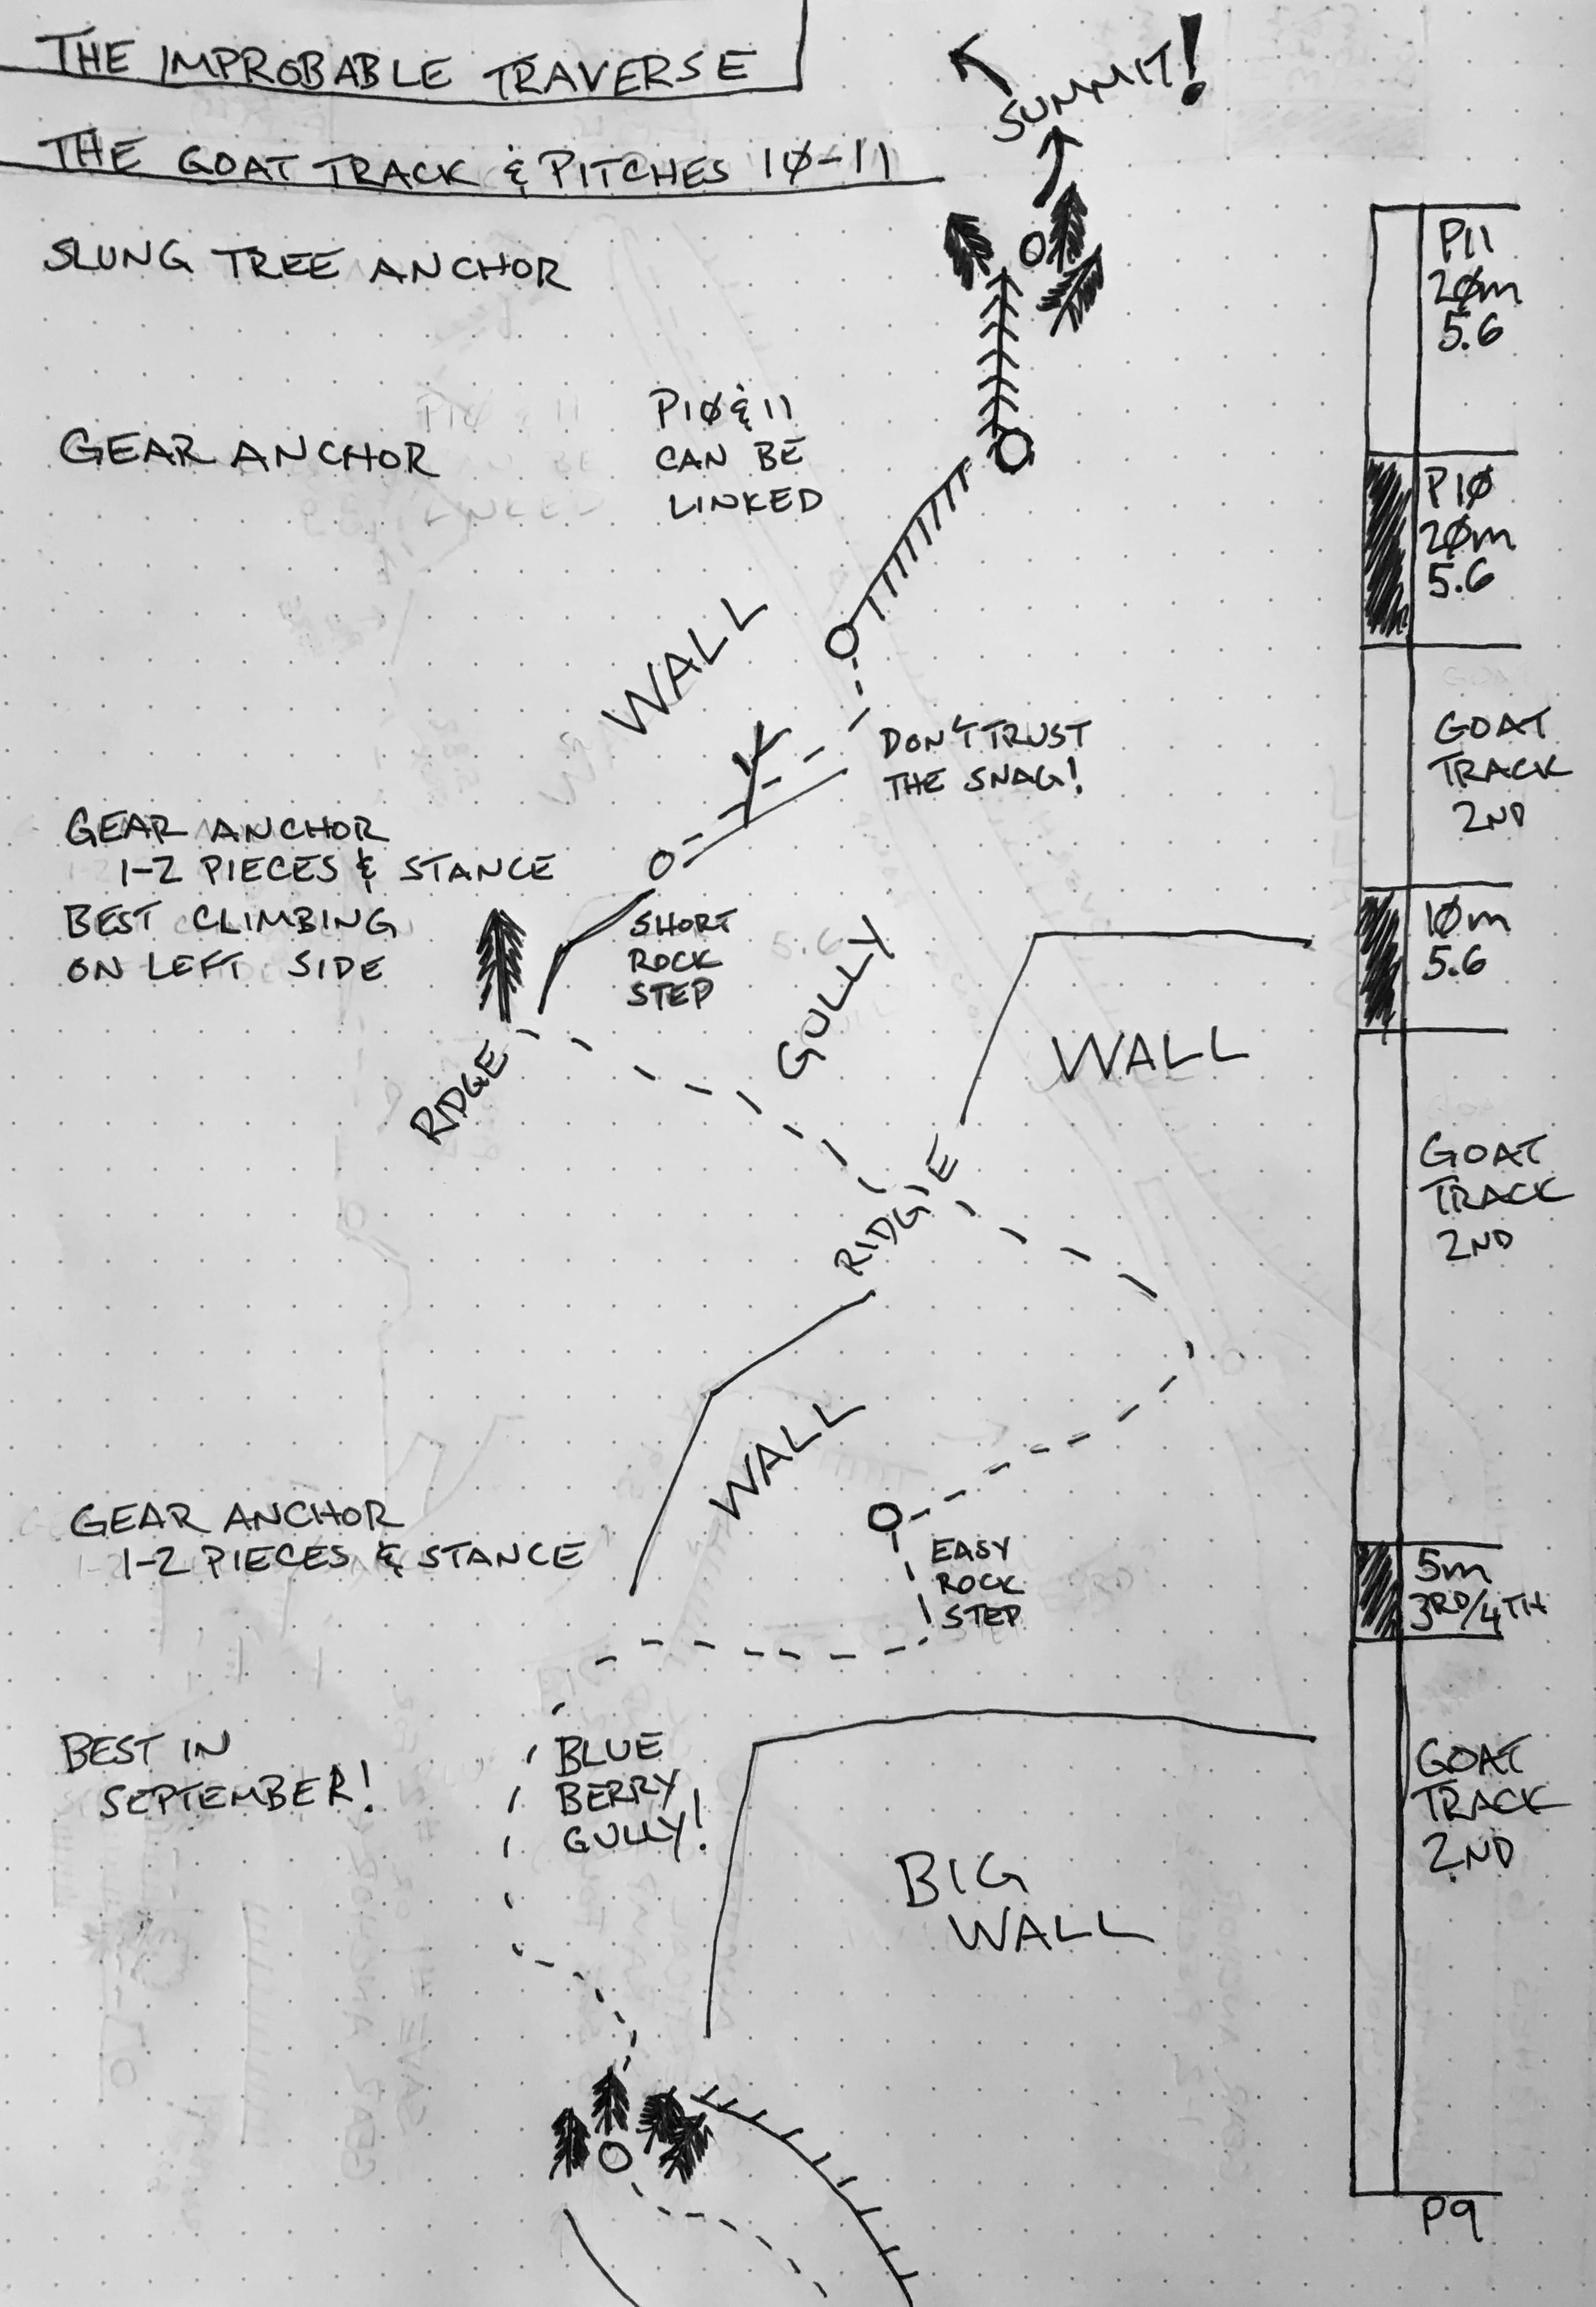 THE IMPROBABLE TRAVERSE
THE GOAT TRACK & PITCHES 10-11
SUMMIT!
SLUNG TREE ANCHOR
P11
20m
5.6
GEAR ANCHOR
P10 & 11
CAN BE
LINKED
P10
20m
5.6
WALL
DON'T TRUST
THE SNAG!
GOAT
TRACK
2ND
GEAR ANCHOR
1-2 PIECES & STANCE
BEST CLIMBING
ON LEFT SIDE
SHORT
ROCK
STEP
10m
5.6
GULLY
WALL
RIDGE
RIDGE
GOAT
TRACK
2ND
WALL
GEAR ANCHOR
1-2 PIECES & STANCE
EASY
ROCK
STEP
5m
3RD/4TH
BEST IN
SEPTEMBER!
BLUE
BERRY
GULLY!
BIG
WALL
GOAT
TRACK
2ND
P9